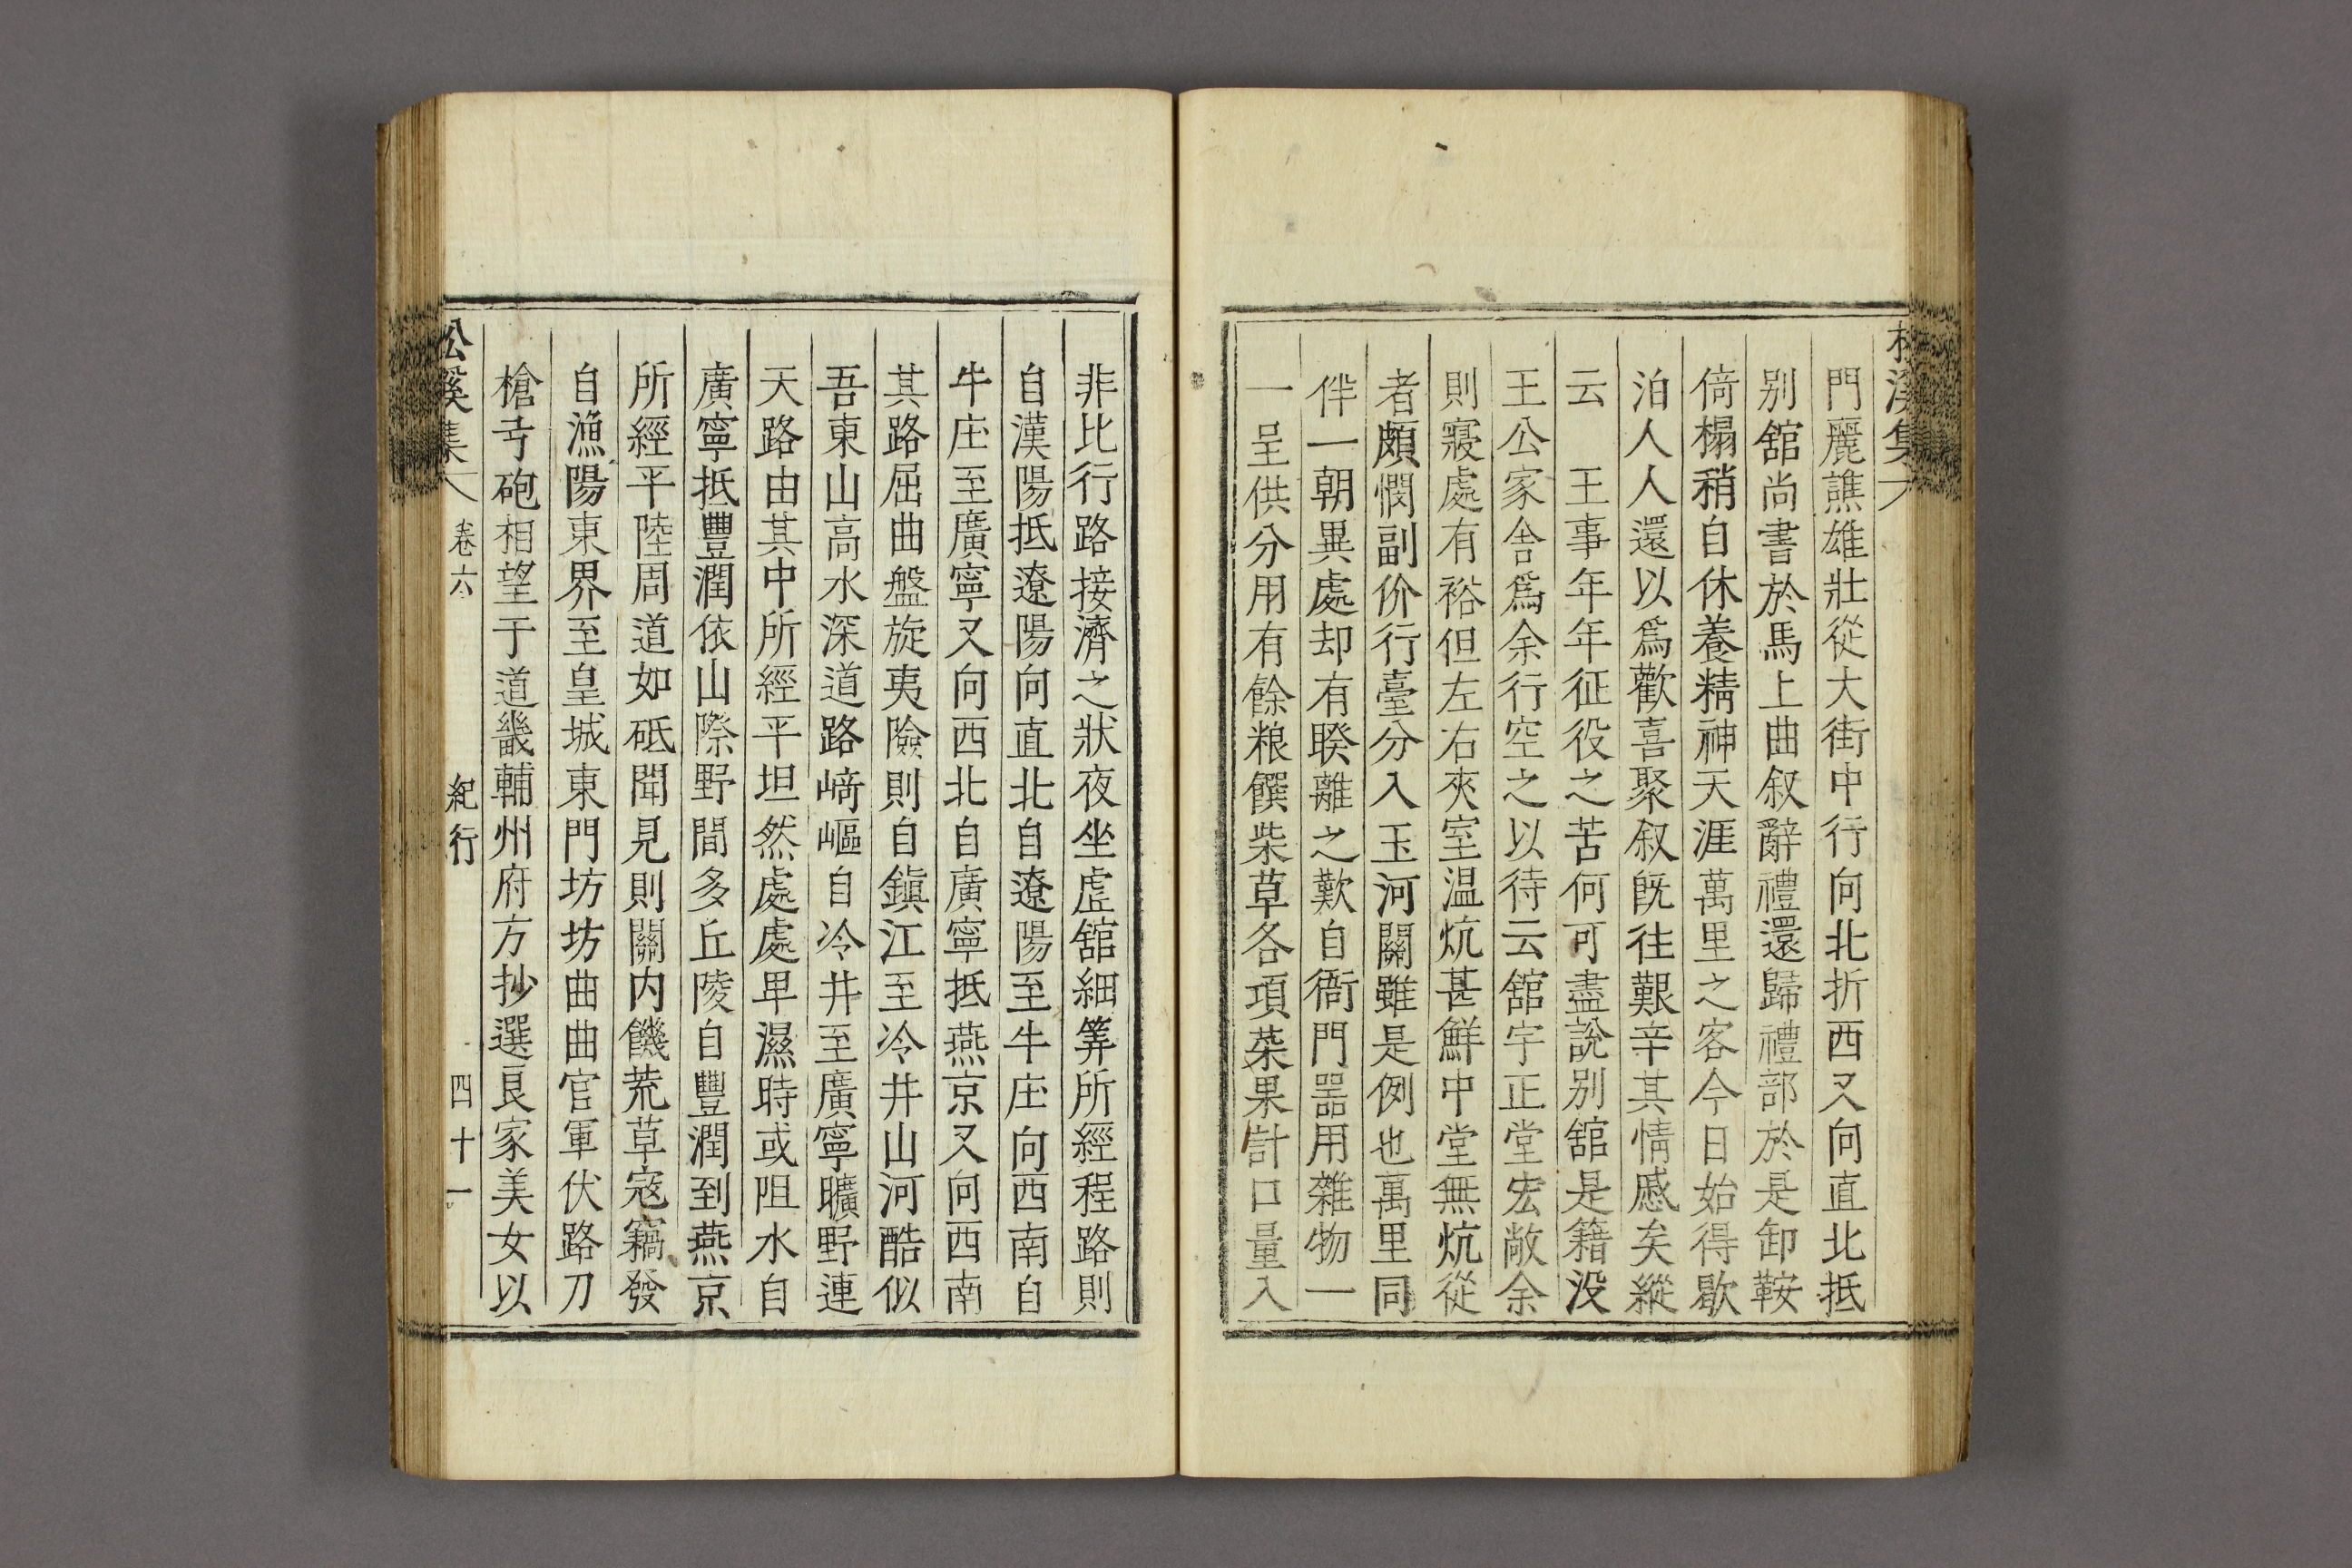 松溪集
門麗譙雄壯從大街中行向北折西又向直北抵
別舘尚書於馬上曲叙辭禮還歸禮部於是卸鞍
倚榻稍自休養精神天涯萬里之客今日始得歇
泊人人還以爲歡喜聚叙旣往艱辛其情慼矣縱
云　王事年年征役之苦何可盡說別舘是籍没
王公家舍爲余行空之以待云舘宇正堂宏敞余
則寢處有裕但左右夾室温炕甚鮮中堂無炕從
者頗憫副价行臺分入玉河關雖是例也萬里同
伴一朝異處却有睽離之歎自衙門噐用雜物一
一呈供分用有餘粮饌柴草各項菜果計口量入
非比行路接濟之狀夜坐虛舘細筭所經程路則
自漢陽抵遼陽向直北自遼陽至牛庄向西南自
牛庄至廣寧又向西北自廣寧抵燕京又向西南
其路屈曲盤旋夷險則自鎭江至冷井山河酷似
吾東山高水深道路﨑嶇自冷井至廣寧曠野連
天路由其中所經平坦然處處早濕時或阻水自
廣寧抵豐潤依山際野間多丘陵自豐潤到燕京
所經平陸周道如砥聞見則關内饑荒草寇竊發
自漁陽東界至皇城東門坊坊曲曲官軍伏路刀
槍弓砲相望于道畿輔州府方抄選良家美女以
松溪集
卷六
紀行
四十一